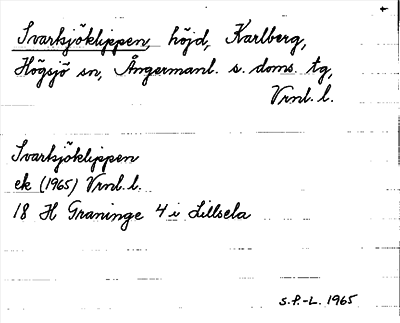 Svarksjöklippen, höjd, Karlberg,
Högsjö sn, Ångermanl. s. doms. tg,
Vrnl. l.
Svarksjöklippen
ek (1965) Vrnl. l.
18 H Graninge 4 i Lillsela
S.P.-L. 1965